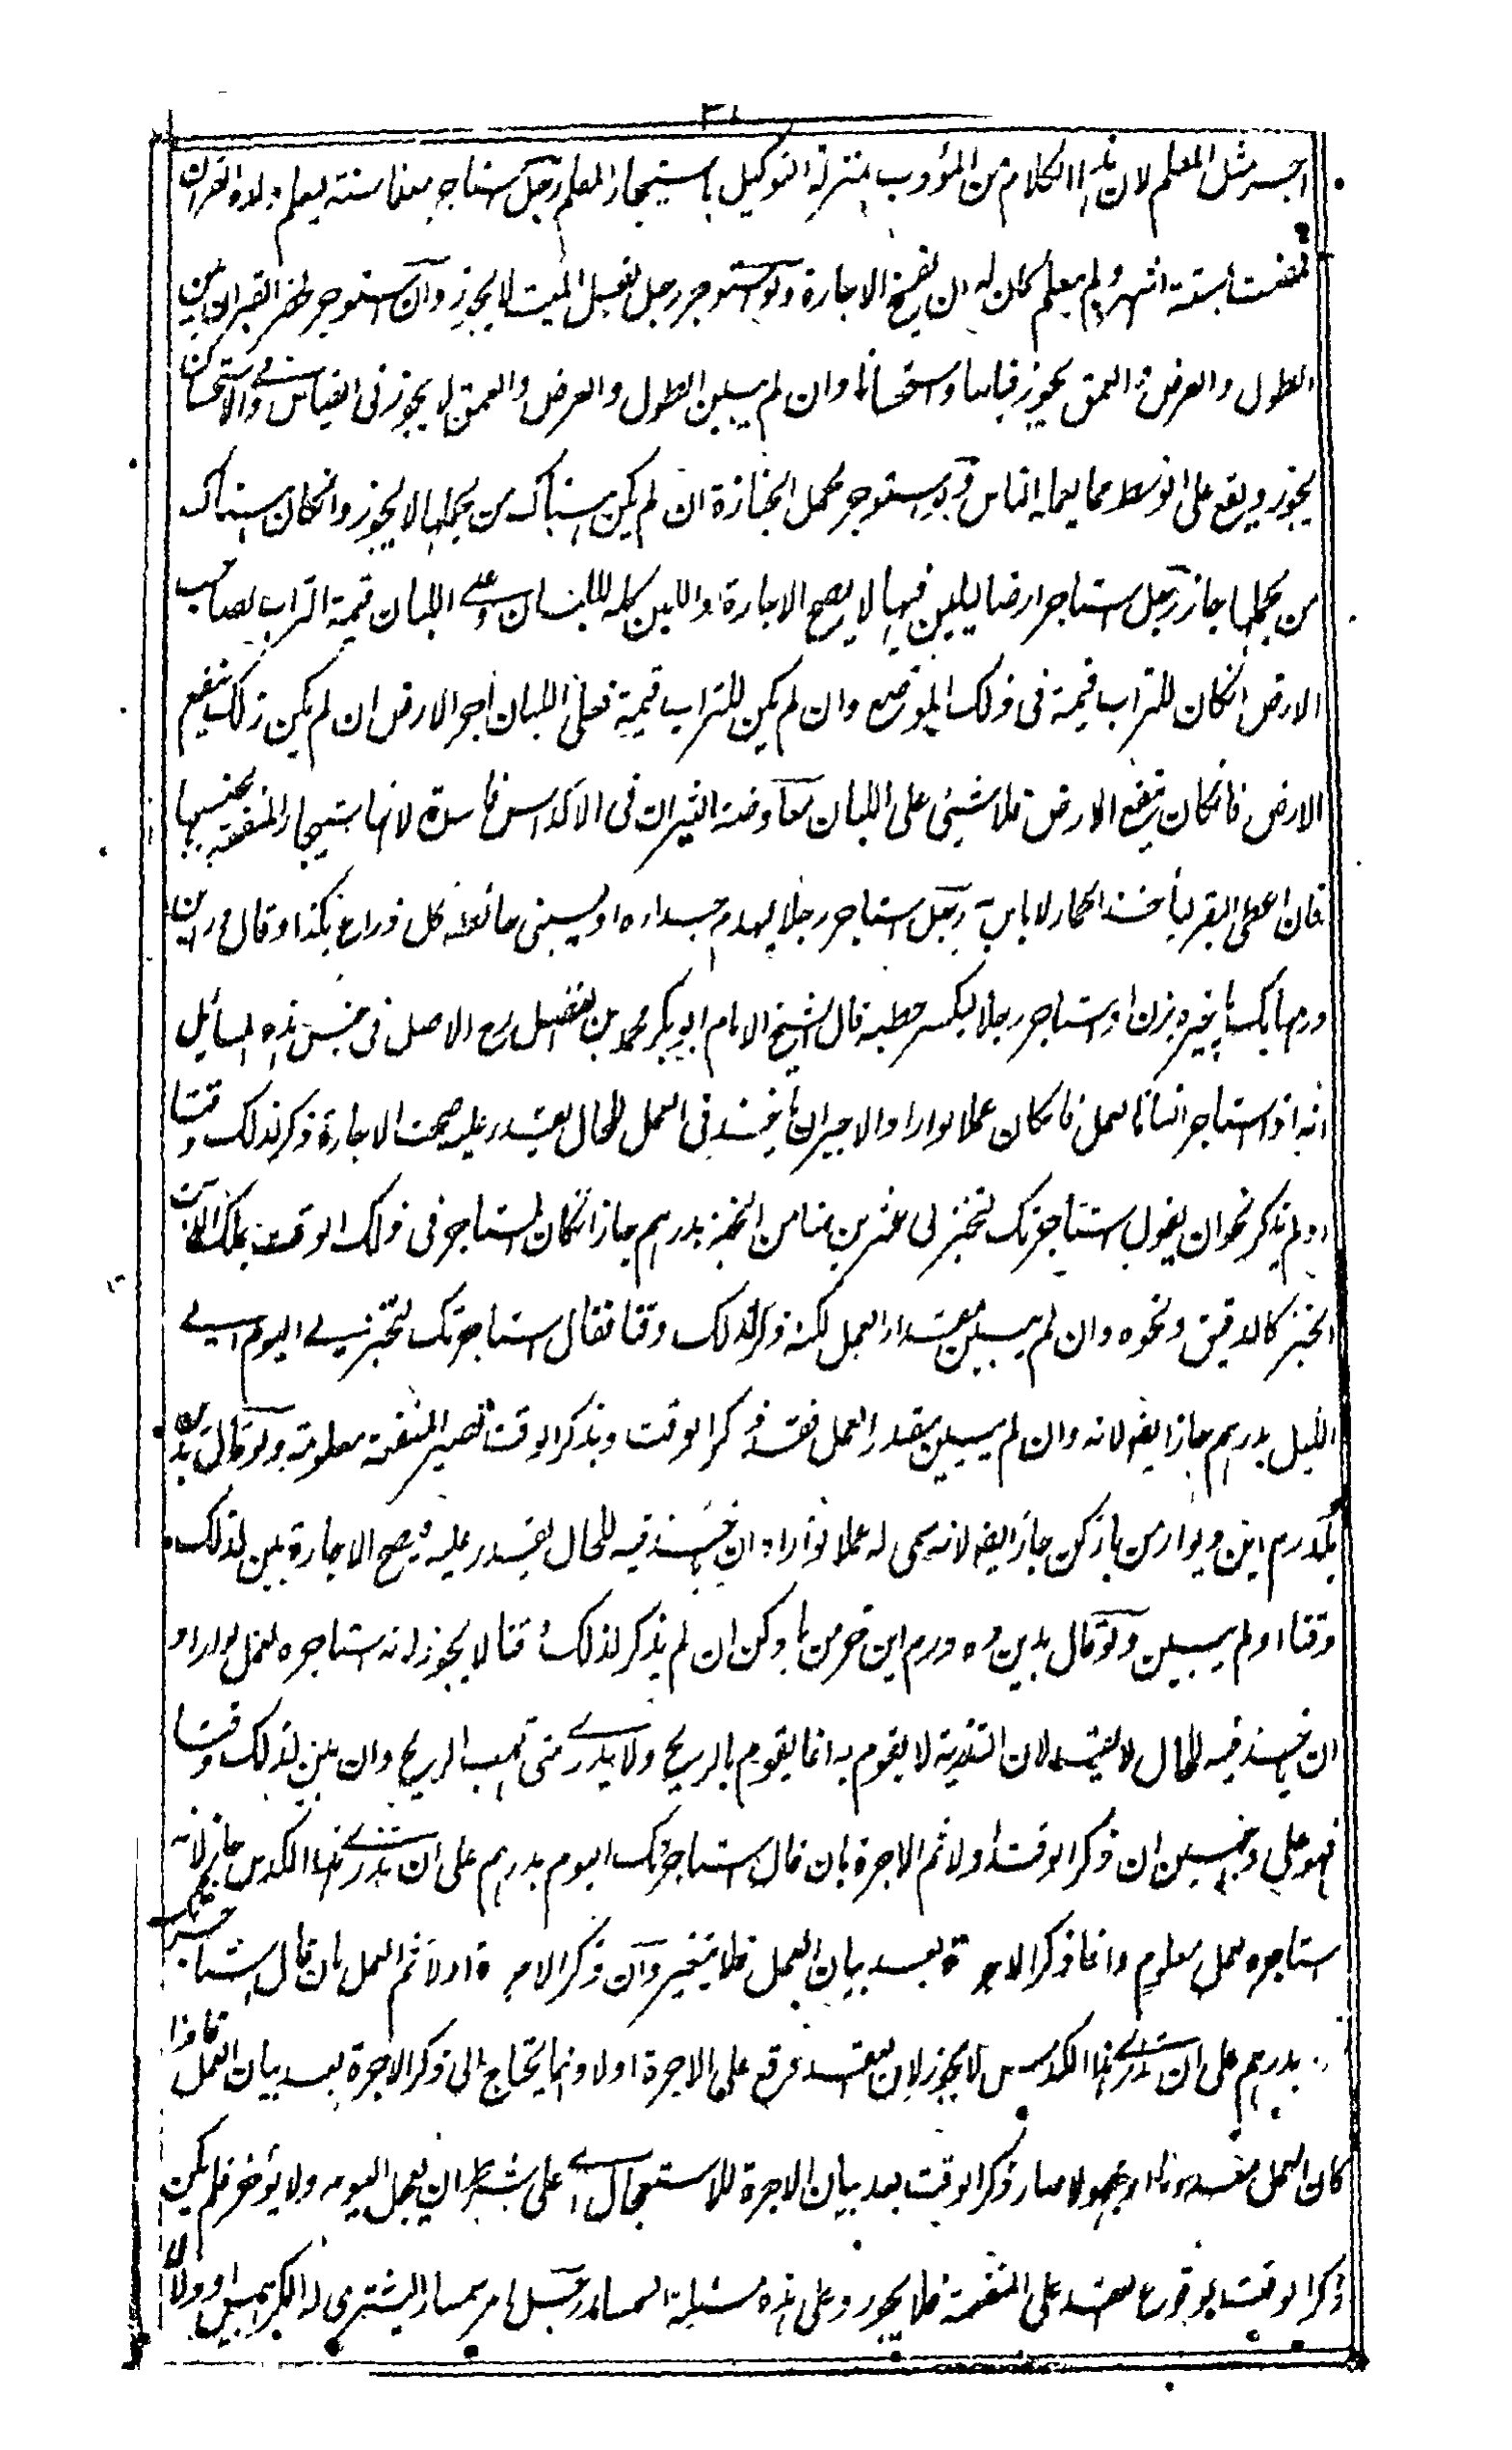 اجر مثل المعلم لان هذا الكلام من المؤدب بمنزلة التوكيل باستيجار المعلم رجل استاجر معلما سنة ليعلم ولده القران
فمضت ستة اشهر ولم يعلم كان له ان يفسخ الاجارة ولو استوجر رجل لغسل الميت لا يجوز وان استوجر لحفر القبر ان بين
الطول والعرض والعمق يجوز قياسا واستحسانا وان لم يبين الطول والعرض والعمق لا يجوز فى القياس وفي الاستحسان
يجوز ويقع على الوسط مما يعمله الناس ولو استوجر لحمل الجنازة ان لم يكن هناك من يحملها لا يجوز وانكان هناك
من يحملها جاز رجل استاجر ارضا ليلبن فيها لا يصح الاجارة واللبن كله للبان وعلى اللبان قيمة التراب لصاحب
الارض انكان للتراب قيمة فى ذلك الموضع وان لم يكن للتراب قيمة فعلى اللبان اجر الارض ان لم يكن ذلك ينفع
الارض فانكان ينفع الارض فلا شيئ على اللبان معاوضة الثيران فى الاكداس فاسدة لانها استيجار المنفعة بجنسها
فان اعطى البقر ليأخذ الحمار لا باس به رجل استاجر رجلا ليهدم جداره او ليبنى حائطه كل ذراع بكذا وقال
درهما يكسا بزن او استاجر رجلا ليكسر حطبه قال الشيخ الامام ابو بكر محمد بن الفضل رح الاصل فى جنس هذه المسائل
انه اذا استاجر انسانا لعمل فانكان عملا لو اراد الاجير ان يأخذ فى العمل للحال يقدر عليه صحت الاجارة ذكر لذلك وقتا
او لم يذكر نحو ان يقول استاجرتك لتخبز لى عشرين منا من الخبز بدرهم جاز انكان المستاجر فى ذلك الوقت يملك الات
الخبز كالدقيق ونحوه وان لم يبين مقدار العمل لكنه ذكر لذلك وقتا فقال استاجرتك لتخبز لي اليوم الى
الليل بدرهم جاز ايضا لانه وان لم يبين مقدار العمل فقد ذكر الوقت وبذكر الوقت تصير المنفعة معلومة ولو قال بدين
يكدرم اين ديوار من باز كن جاز ايضا لانه سمى له عملا لو اراد ان ياخذ فيه للحال يقدر عليه فيصح الاجارة بين لذلك
وقتا او لم يبين ولو قال بدين ده درم اين خرمن با دكن ان لم يذكر لذلك وقتا لا يجوز لانه استاجره لعمل لو اراد
ان ياخذ فيه للحال لا يقدر لان التذرية لا يقوم به انما يقوم بالريح ولا يدري متى تهب الريح وان بين لذلك وقتا
فهو على وجهين ان ذكر الوقت اولا ثم الاجرة بان قال استاجرتك اليوم بدرهم على ان تذري هذا الكدس جاز لانه
استاجره لعمل معلوم وانما ذكر الاجرة بعد بيان العمل فلا يتغير وان ذكر الاجرة اولا ثم العمل بان قال استاجرتك
بدرهم على ان تذري هذا الكدس لا يجوز لان العقد وقع على الاجرة اولا وانما يحتاج الى ذكر الاجرة بعد بيان العمل فاذا
كان العمل معدوما او مجهولا صار ذكر الوقت بعد بيان الاجرة للاستعجال اي على شرط ان يعجل اليوم ولا يؤخر فلم يكن
ذكر الوقت لوقوع العقد على المنفعة فلا يجوز وعلى هذه مسئلة السمسار رجل امر سمسارا ليشترى له الكرابيس او دلالا